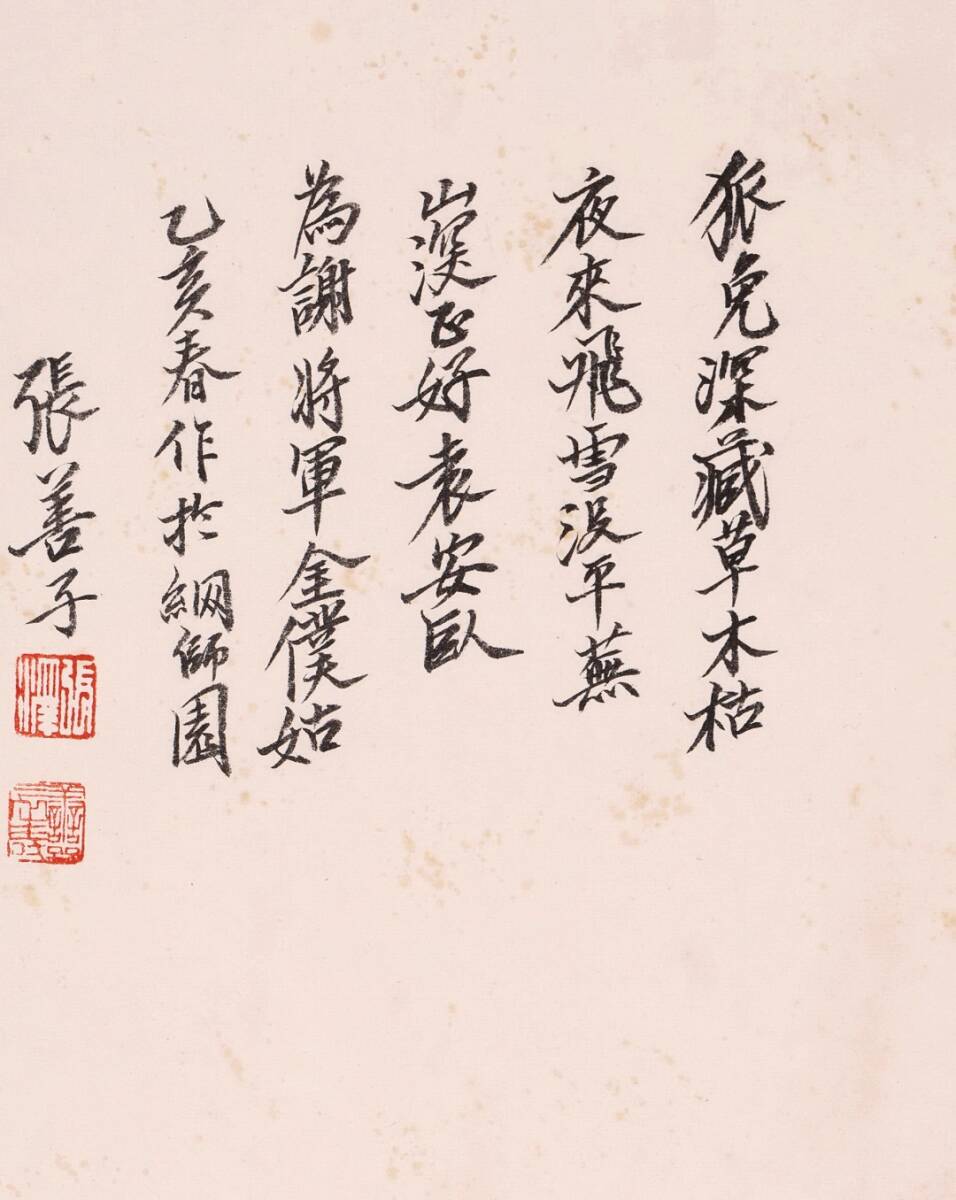 狐兔深藏草木枯
夜來飛雪沒平蕪
山深正好袁安臥
為謝將軍金僕姑
乙亥春作於網師園
張善子
張澤